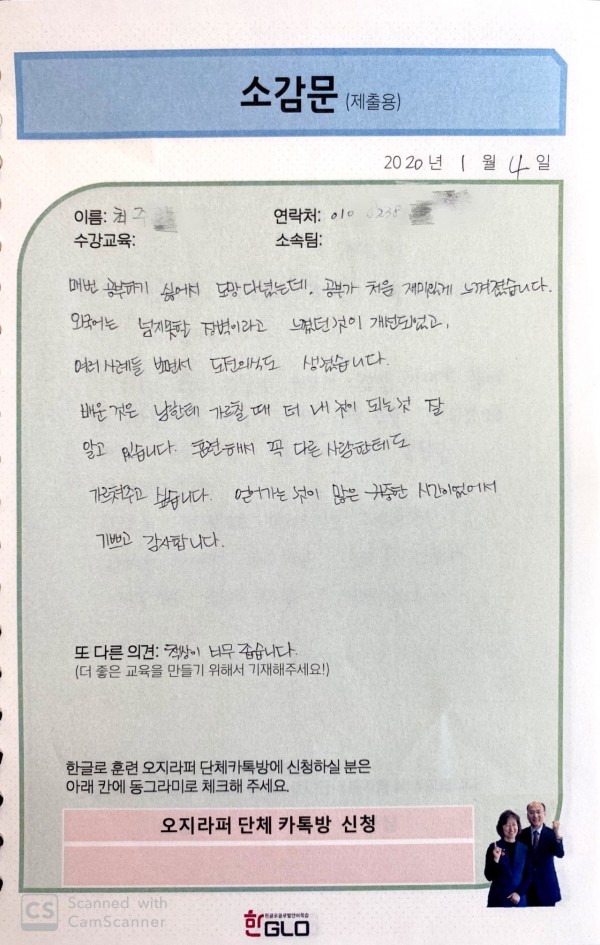 소감문 (제출용)
2020년 1월 4일
이름: 최주
연락처: 010 0238
수강교육:
소속팀:
매번 공부하기 싫어서 도망다녔는데, 공부가 처음 재미있게 느껴졌습니다.
외국어는 넘지못할 장벽이라고 느꼈던것이 개선되었고,
여러 사례들 보면서 도전의식도 생겼습니다.
배운 것은 남한테 가르칠 때 더 내 것이 되는것 잘
알고 있습니다. 훈련해서 꼭 다른 사람한테도
가르쳐주고 싶습니다. 얻어가는 것이 많은 귀중한 시간이었어서
기쁘고 감사합니다.
또 다른 의견: 책상이 너무 좁습니다.
(더 좋은 교육을 만들기 위해서 기재해주세요!)
한글로 훈련 오지라퍼 단체카톡방에 신청하실 분은
아래 칸에 동그라미로 체크해 주세요.
오지라퍼 단체 카톡방 신청
CS Scanned with
CamScanner
한GLO